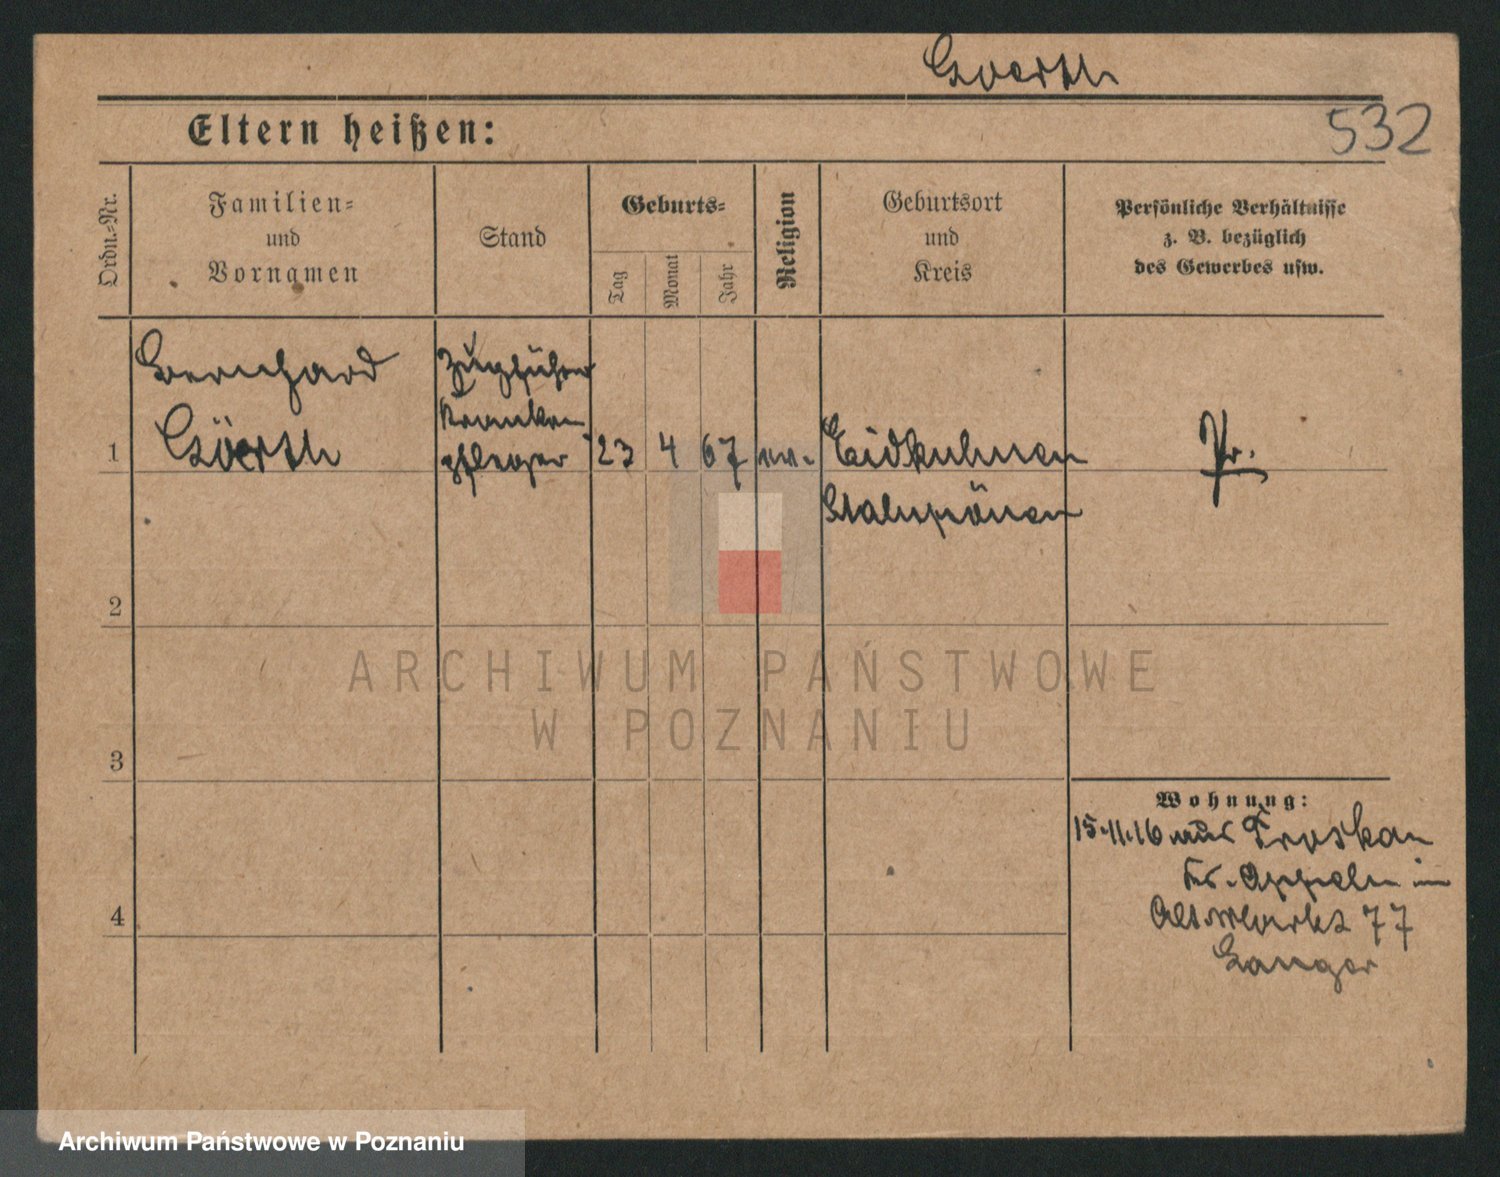 Goerth
532
Eltern heißen:
Ordn.-Nr.
Familien-
und
Vornamen
Stand
Geburts-
Tag
Monat
Jahr
Religion
Geburtsort
und
Kreis
Persönliche Verhältnisse
z. B. bezüglich
des Gewerbes usw.
1
Bernhard
Görth
Zugführer
Kranken
pfleger
23
4
67
ev.
Eidkuhnen
Stalupönen
Pr.
2
3
4
Wohnung:
15.11.16 aus
Kr. Oppeln in
Alt. Markt 77
Langer
ARCHIWUM PAŃSTWOWE
W POZNANIU
Archiwum Państwowe w Poznaniu